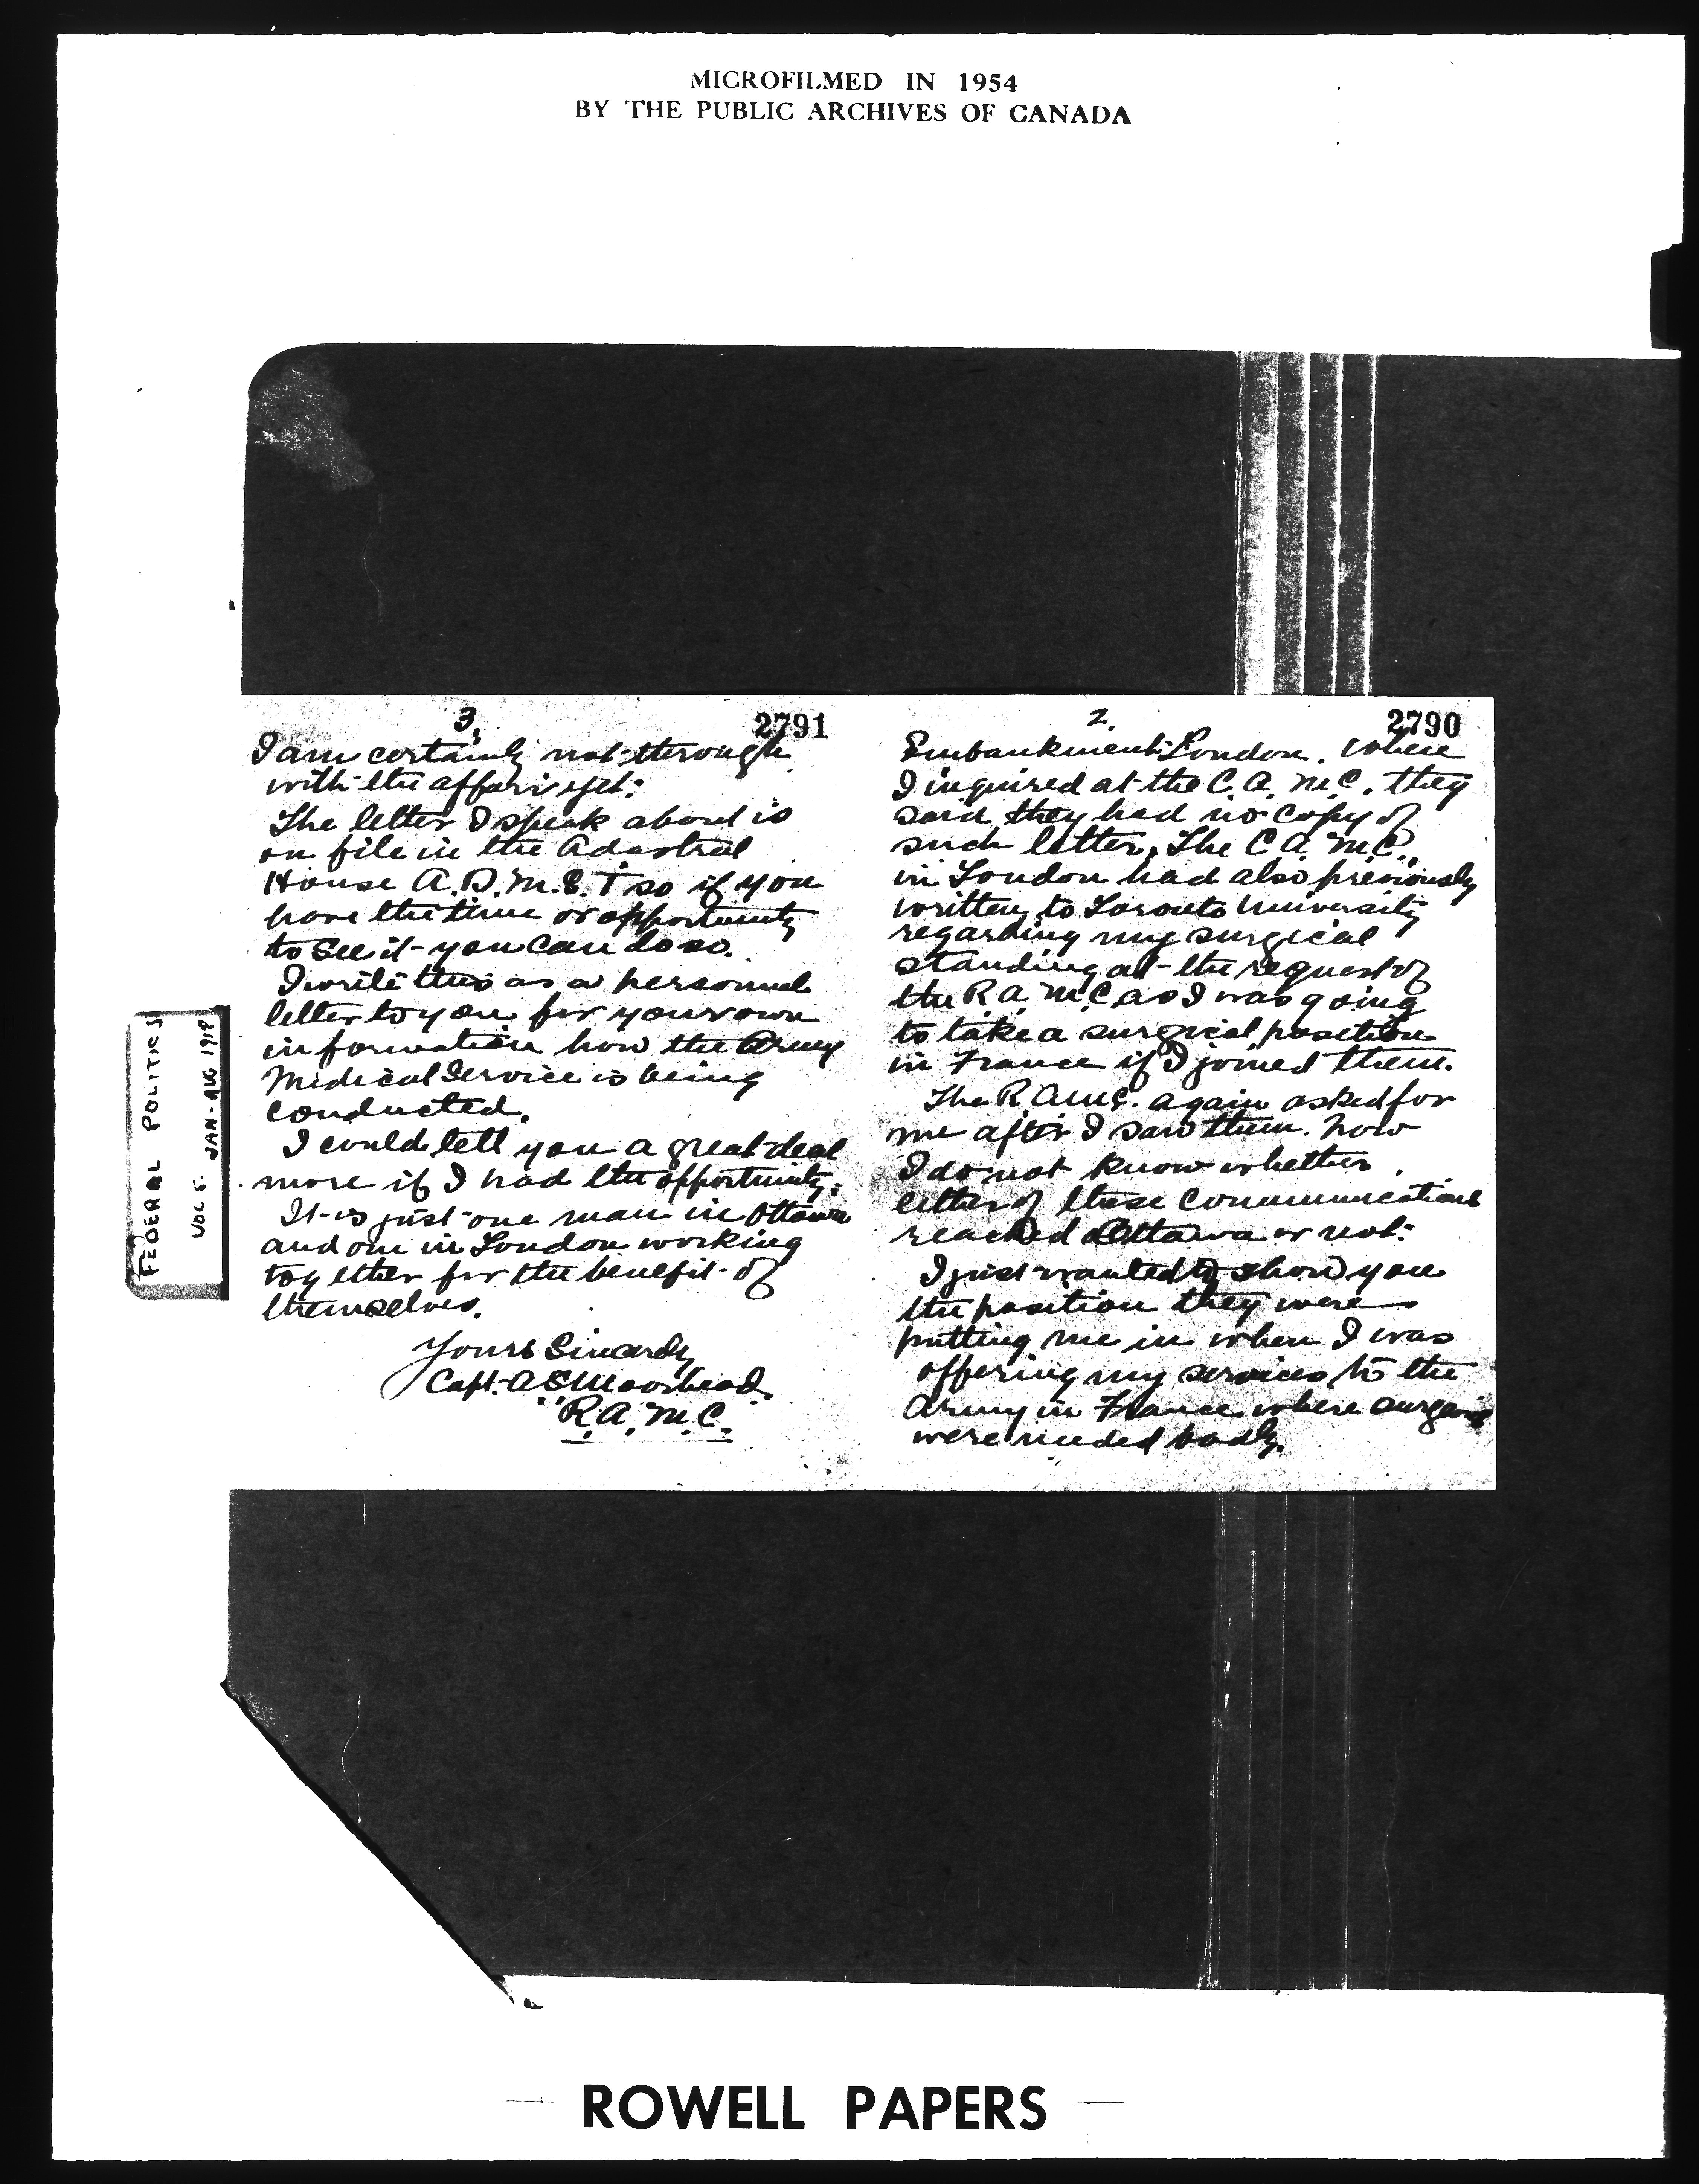 MICROFILMED IN 1954
BY THE PUBLIC ARCHIVES OF CANADA
3
2791
I am certainly not through
with the affair yet.
The letter I speak about is
on file in the Adastral
House A.D.M.S. T so if you
have the time or opportunity
to see it you can do so.
I write this as a personal
letter to you for your own
information how the Army
Medical Service is being
conducted.
I could tell you a great deal
more if I had the opportunity.
It is just one man in Ottawa
and one in London working
together for the benefit of
themselves.
Yours Sincerely
Capt. A E Moorhead.
R.A.M.C.
2.
2790
Embankment London. When
I inquired at the C.A.M.C. they
said they had no copy of
such letter. The C.A.M.C.
in London had also previously
written to Toronto University
regarding my surgical
standing at the request of
the R.A.M.C. as I was going
to take a surgical position
in France if I joined them.
The R.A.M.C. again asked for
me after I saw them. Now
I do not know whether
either of these communications
reached Ottawa or not.
I just wanted to show you
the position they were
putting me in when I was
offering my services to the
Army in France where surgeons
were needed badly.
FEDERAL POLITICS
VOL 5. JAN-AUG 1918
ROWELL PAPERS